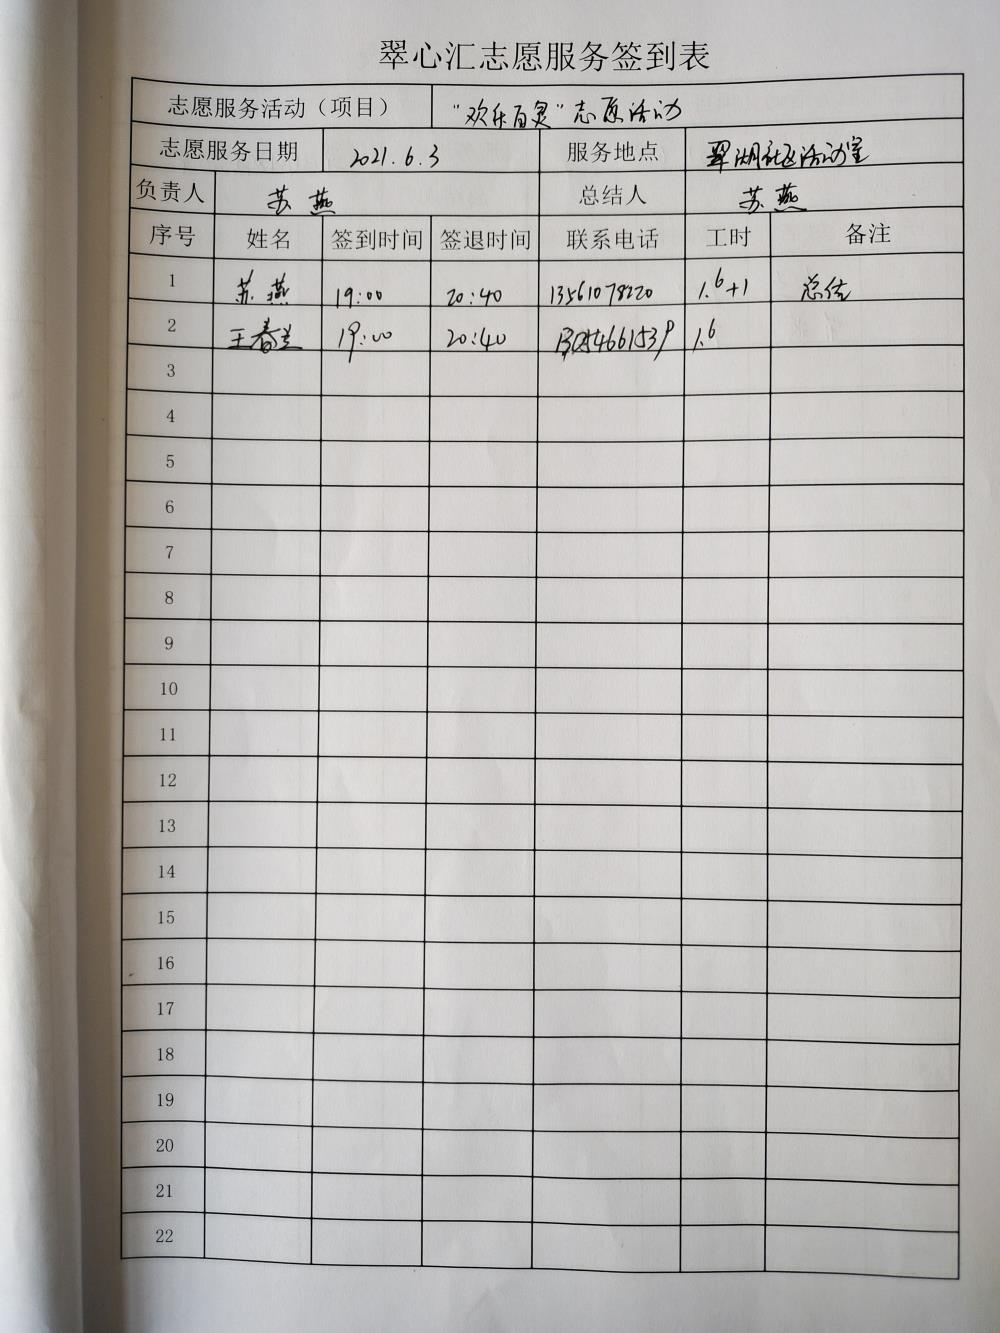 翠心汇志愿服务签到表
志愿服务活动（项目） “欢乐百灵”志愿活动
志愿服务日期 2021.6.3 服务地点 翠湖社区活动室
负责人 苏燕 总结人 苏燕
序号 姓名 签到时间 签退时间 联系电话 工时 备注
1 苏燕 19:00 20:40 13561078220 1.6+1 总结
2 王春兰 19:00 20:40 13054661539 1.6
3
4
5
6
7
8
9
10
11
12
13
14
15
16
17
18
19
20
21
22